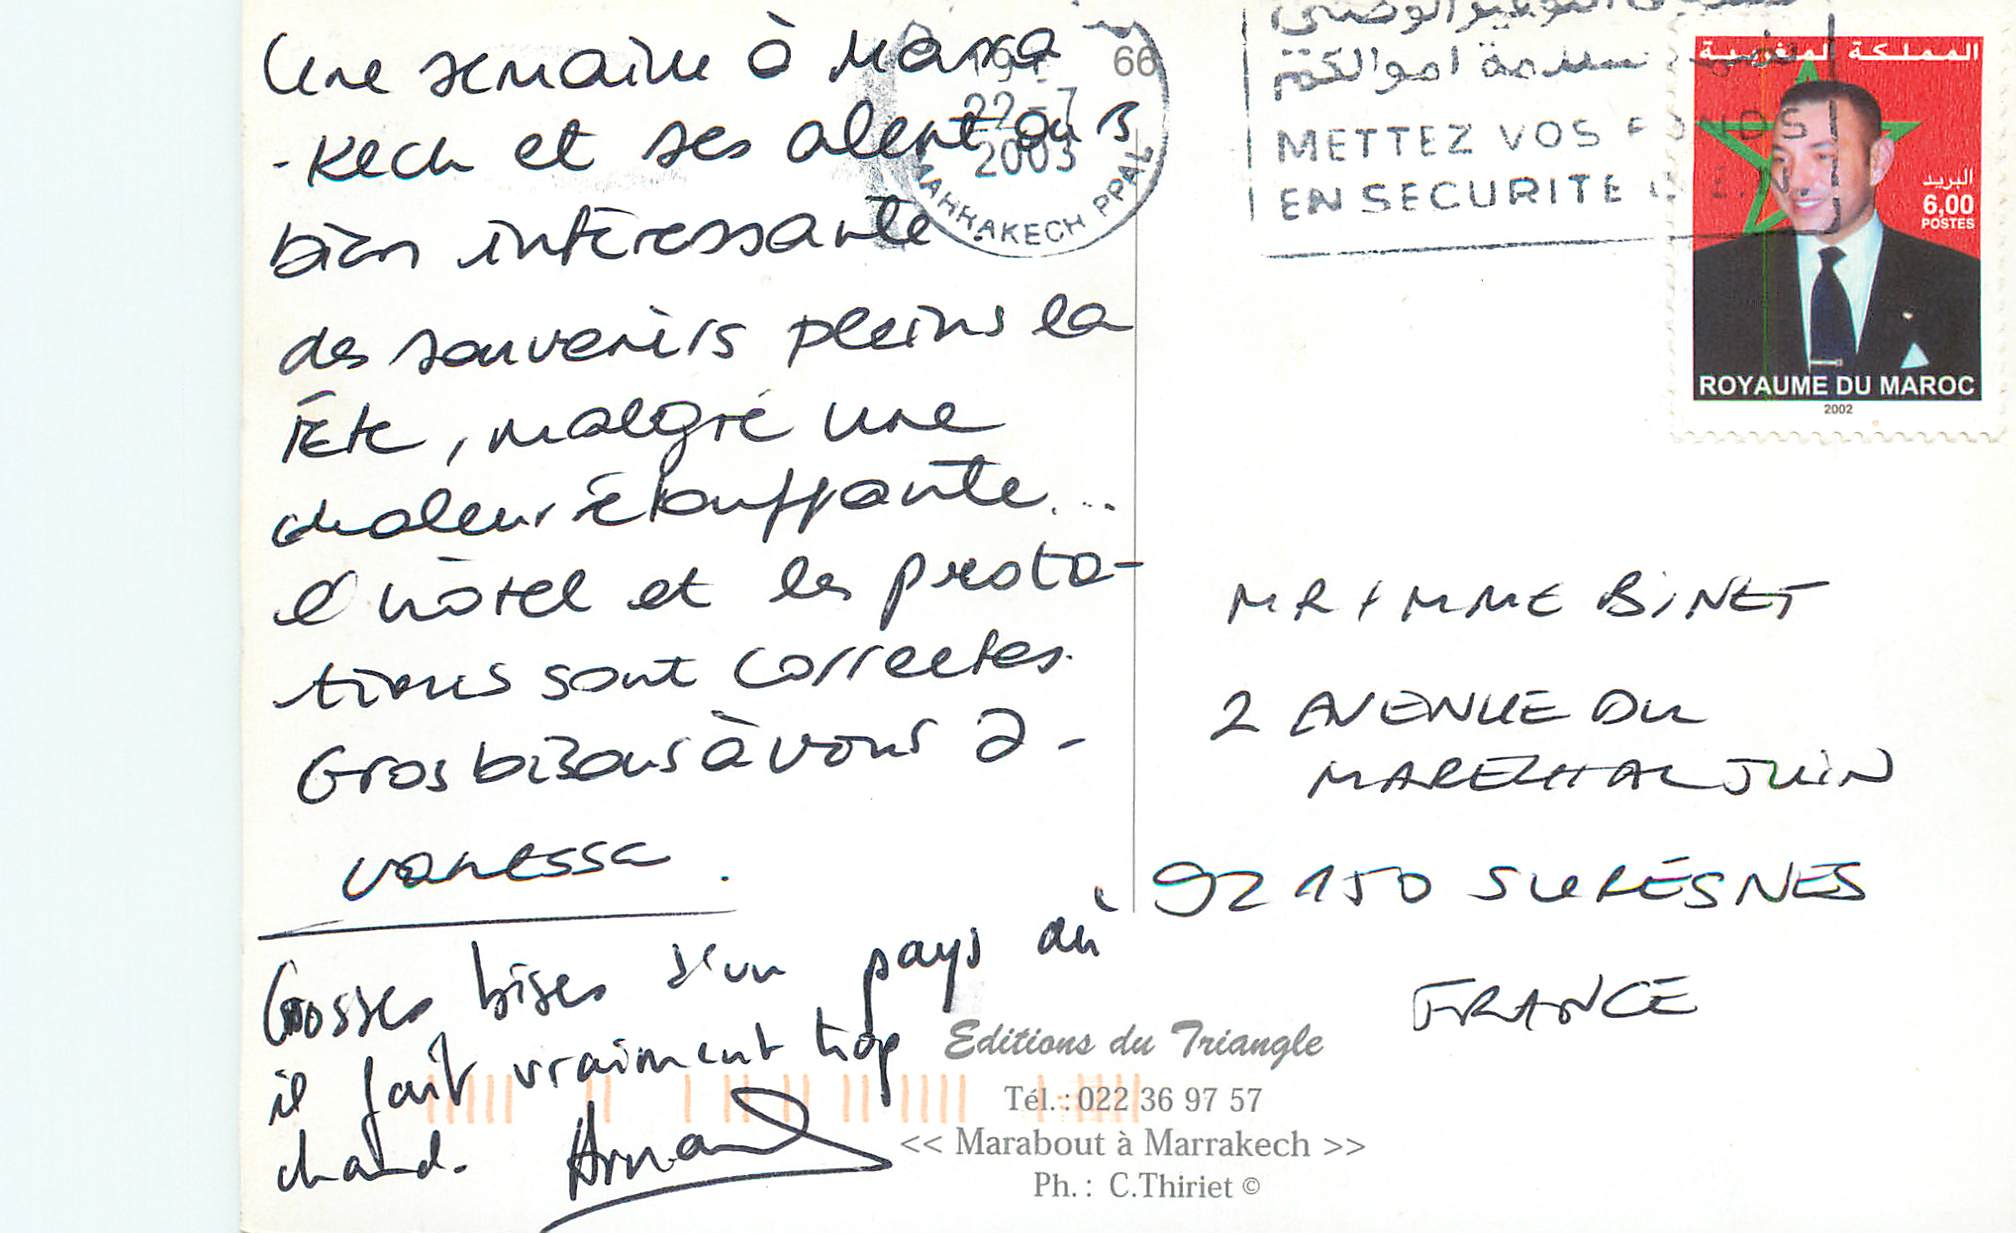 Une semaine à Marra
-kech et ses alentours
bien intéressante
des souvenirs pleins la
tête, malgré une
chaleur étouffante...
l'hôtel et les presta-
tions sont correctes.
Gros bisous à vous 2 -
Vanessa.
Grosses bises d'un pays où
il fait vraiment trop
chaud. Arnaud
66
22-7
2003
MARRAKECH PPAL
METTEZ VOS FONDS
EN SECURITE
المملكة المغربية
البريد
6,00
POSTES
ROYAUME DU MAROC
2002
MR / MME BINET
2 AVENUE DU
MARECHAL JUIN
92150 SURESNES
FRANCE
Editions du Triangle
Tél. : 022 36 97 57
<< Marabout à Marrakech >>
Ph. : C.Thiriet ©